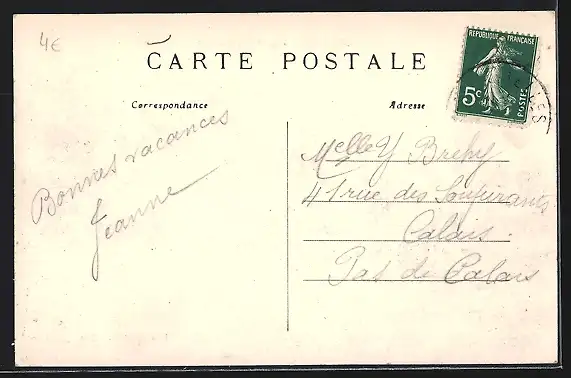 4€
CARTE POSTALE
RÉPUBLIQUE FRANÇAISE
5c
POSTES
Correspondance
Adresse
Bonnes vacances
Jeanne
Melle Y Brehy
41 rue des Soupirants
Calais.
Pas de Calais